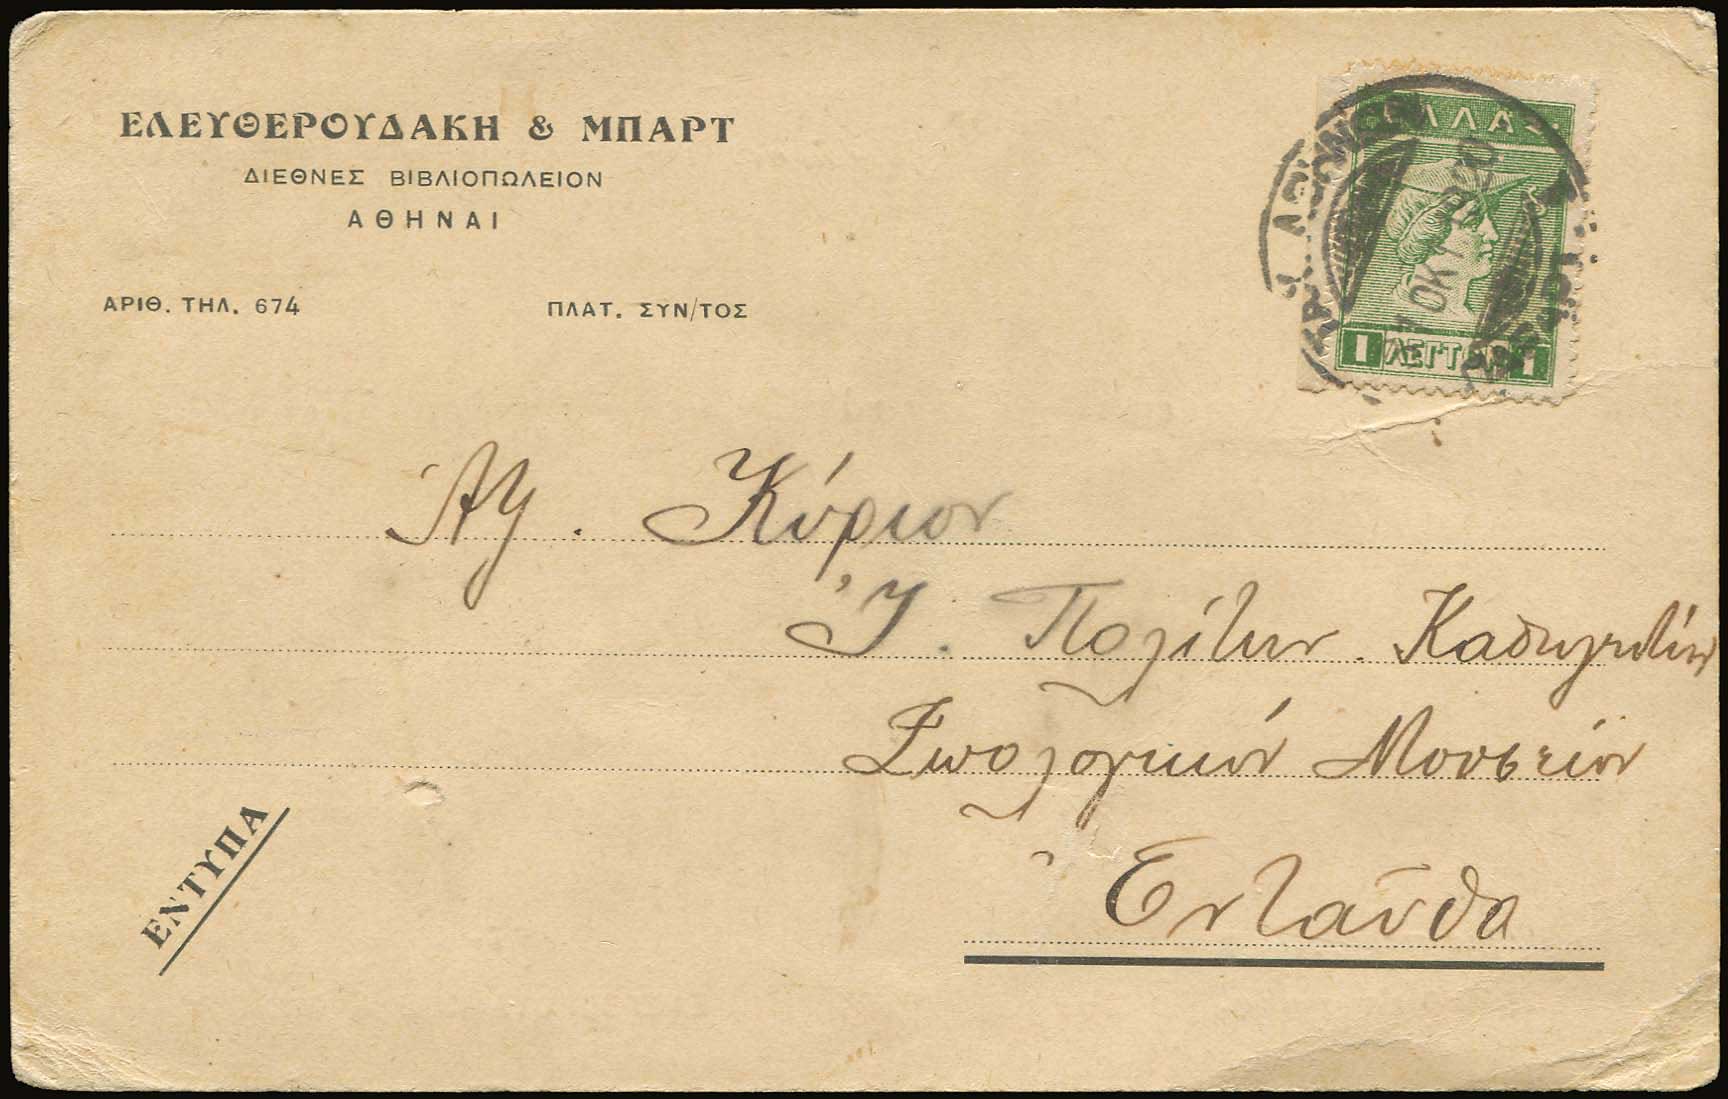 ΕΛΕΥΘΕΡΟΥΔΑΚΗ & ΜΠΑΡΤ
ΔΙΕΘΝΕΣ ΒΙΒΛΙΟΠΩΛΕΙΟΝ
ΑΘΗΝΑΙ
ΑΡΙΘ. ΤΗΛ. 674
ΠΛΑΤ. ΣΥΝ/ΤΟΣ
ΕΛΛΑΣ
1 ΛΕΠΤΟΝ 1
ΟΚΤ 920
Ἀξ. Κύριον
Ἰ. Πολίτην Καθηγητήν
Ζωολογικόν Μουσείον
Ἐνταῦθα
ΕΝΤΥΠΑ